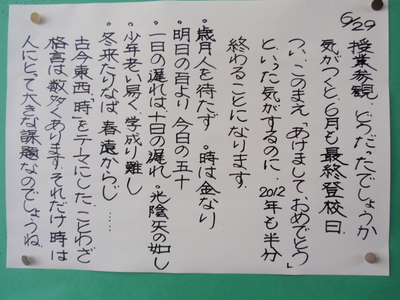 6/29
授業参観 どうだったでしょうか
気がつくと、6月も最終登校日。
つい、このまえ「あけまして おめでとう」
といった気がするのに、2012年も半分
終わることになります。
・歳月人を待たず ・時は金なり
・明日の百より 今日の五十
・一日の遅れは十日の遅れ ・光陰矢の如し
・少年老い易く 学成り難し
・冬来たりなば 春遠からじ ……
古今東西「時」をテーマにした、ことわざ
格言は数多くあります。それだけ 時は
人にとって大きな課題なのでしょうね。